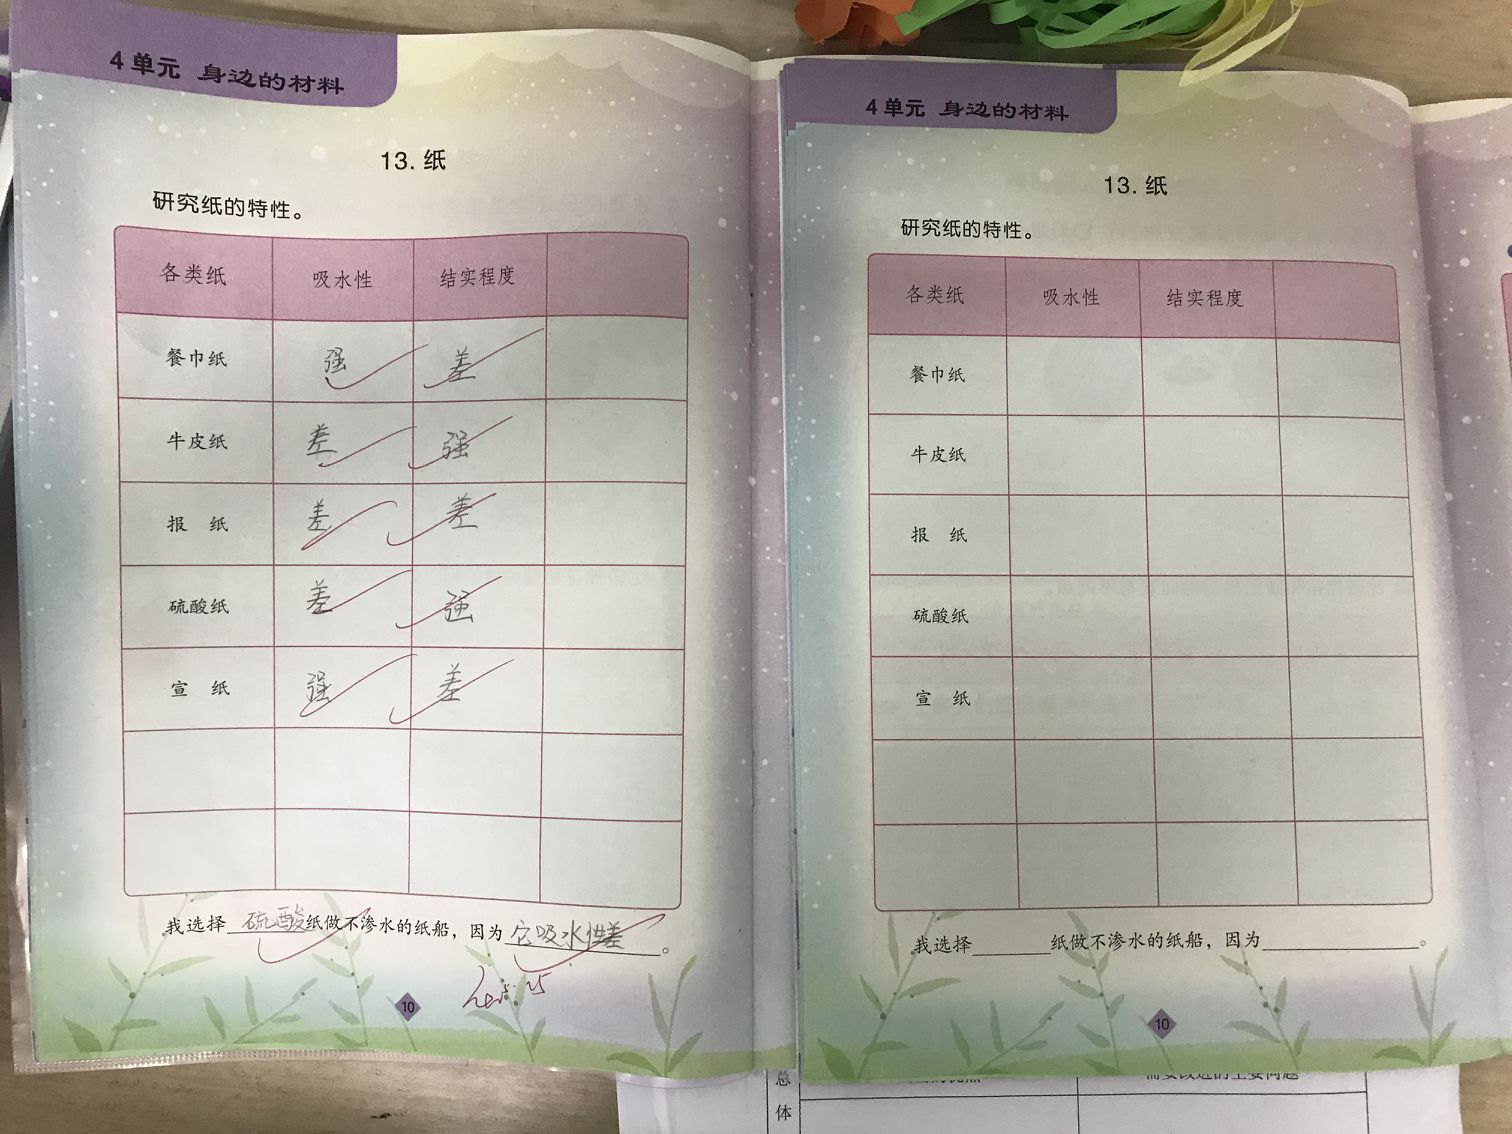 4单元 身边的材料
13. 纸
研究纸的特性。
各类纸 吸水性 结实程度
餐巾纸 强 差
牛皮纸 差 强
报 纸 差 差
硫酸纸 差 强
宣 纸 强 差
我选择硫酸纸做不渗水的纸船，因为它吸水性差。
10
4单元 身边的材料
13. 纸
研究纸的特性。
各类纸 吸水性 结实程度
餐巾纸
牛皮纸
报 纸
硫酸纸
宣 纸
我选择________纸做不渗水的纸船，因为________________。
10
总
体